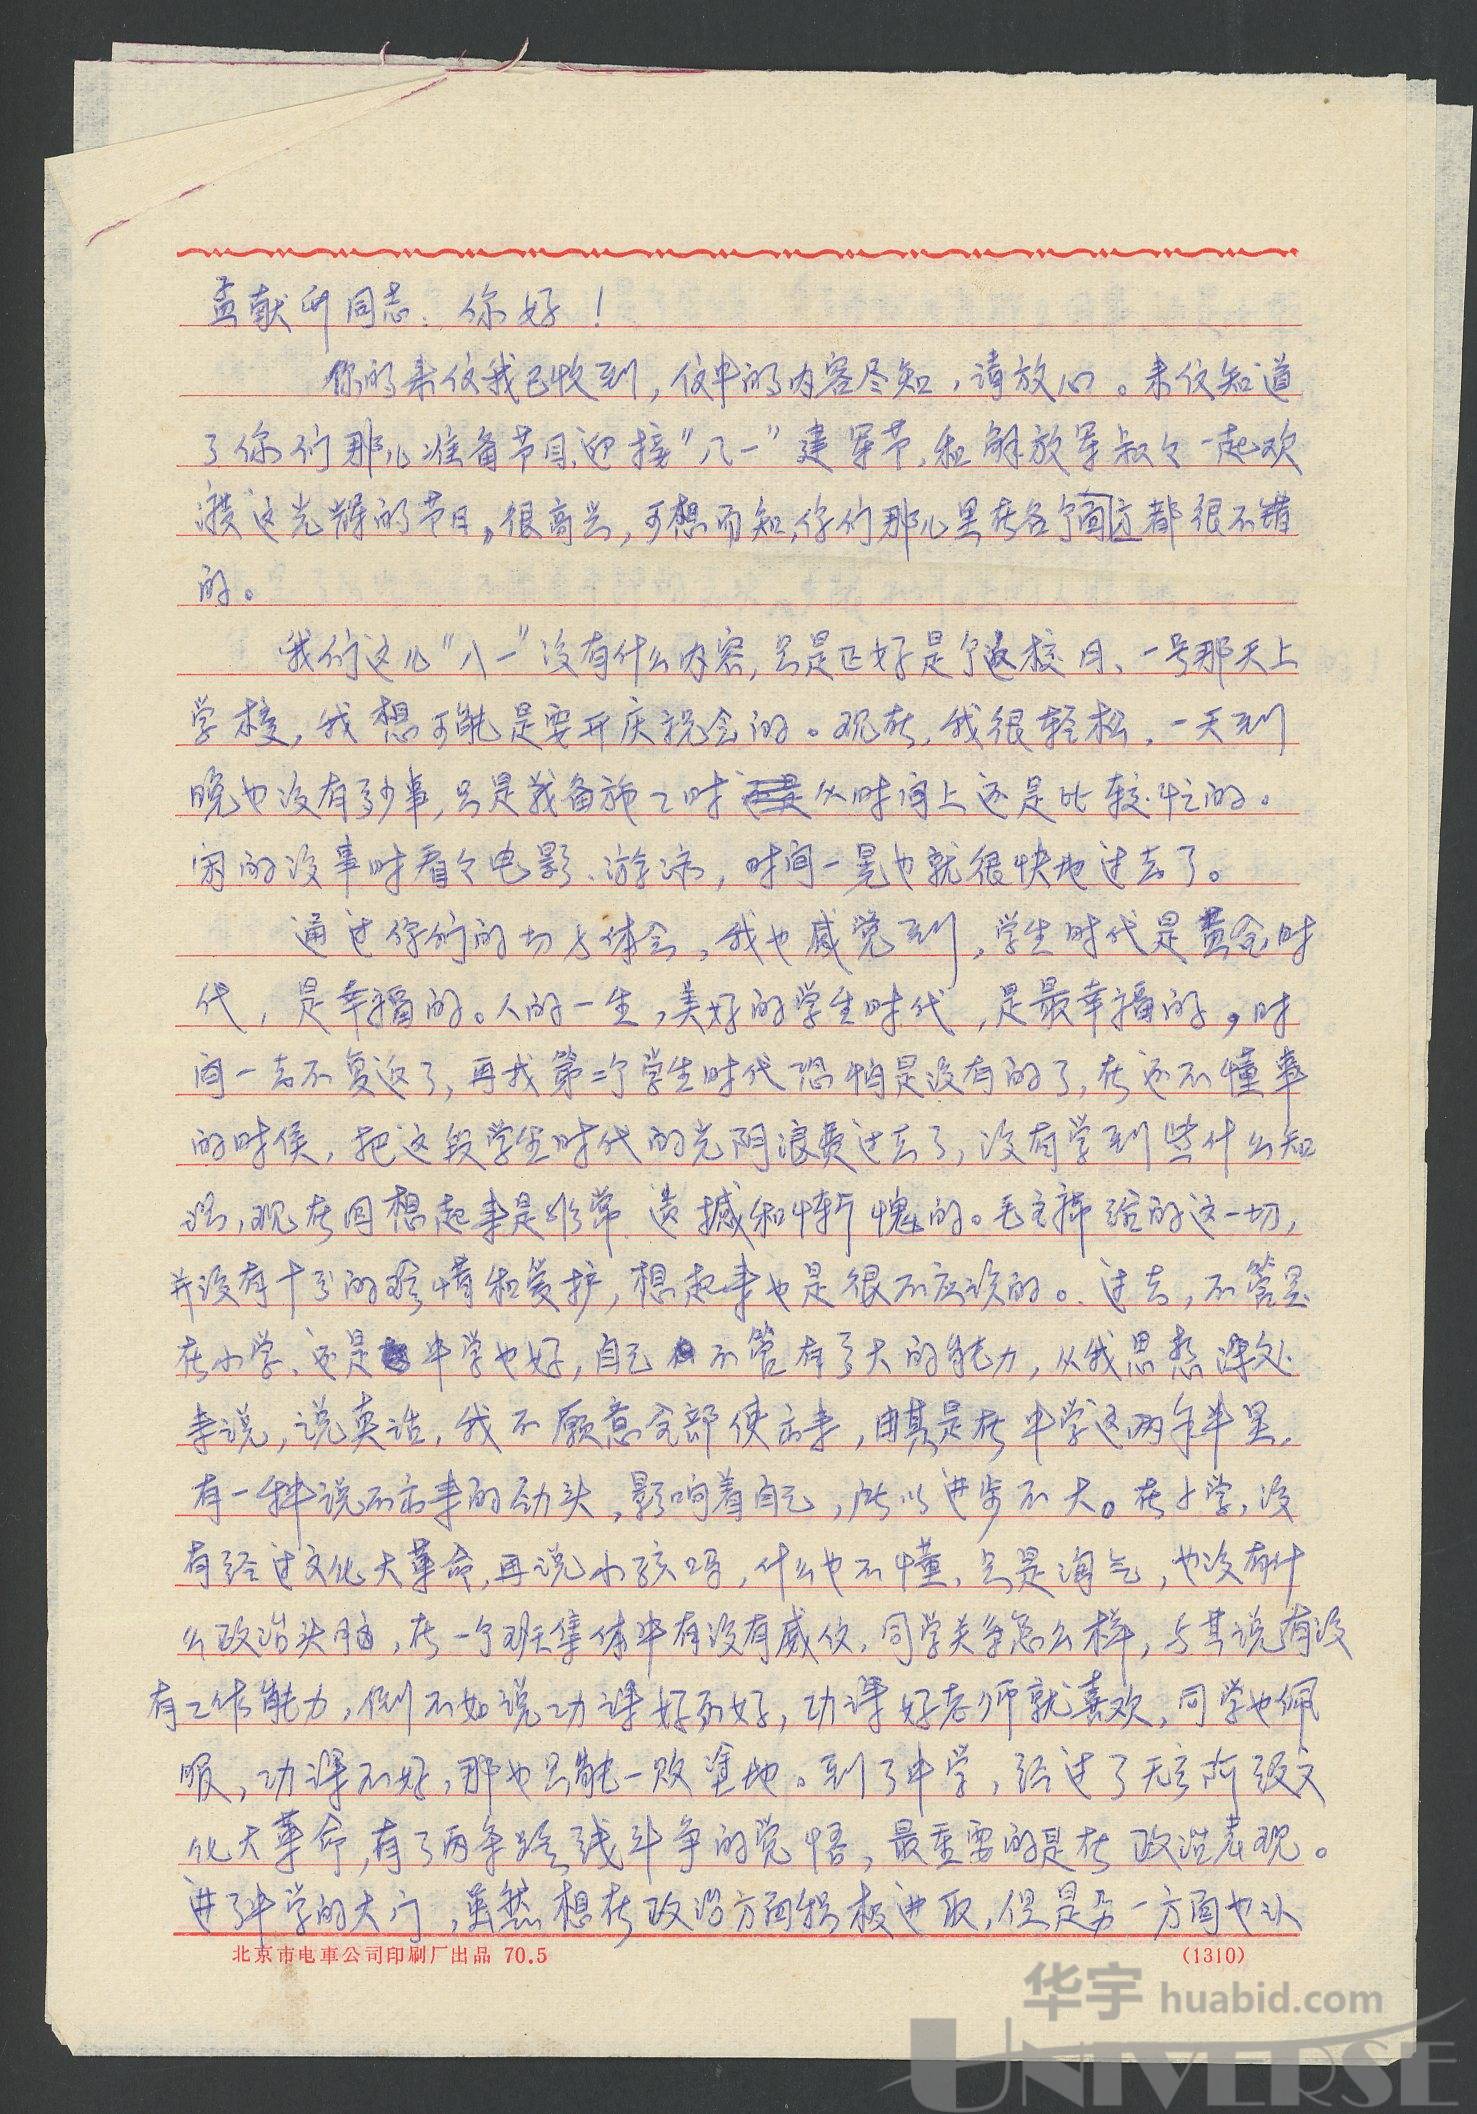 孟献 同志：你好！
你的来仪我已收到，仪中的内容尽知，请放心。来仪知道
了你们那儿准备节目，迎接“八一”建军节，和解放军叔々一起欢
渡这光辉的节日，很高兴，可想而知，你们那儿里在各个面方都很不错
的。
我们这儿“八一”没有什么内容，只是正好是个返校日、一号那天上
学校，我想可能是要开庆祝会的。现在，我很轻松，一天到
晚也没有多少事，只是战备施工时 从时间上还是比较忙的。
闲的没事时看々电影、游泳，时间一晃也就很快地过去了。
通过你们的切 体会，我也感觉到，学生时代是黄金时
代，是幸福的。人的一生，美好的学生时代，是最幸福的，时
间一去不复返了，再找第二个学生时代恐怕是没有的了，在还不懂事
的时侯，把这段学生时代的光阴浪费过去了，没有学到些什么知
识，现在回想起来是非常遗撼和惭愧的。毛主席给的这一切，
并没有十分的珍惜和爱护，想起来也是很不应该的。过去，不管是
在小学、还是中学也好，自己不管有多大的能力，从我思想深处
来说，说真话，我不愿意全部使出来，由其是在中学这两年半里，
有一种说不出来的劲头，影响着自己，所以进步不大。在小学，没
有经过文化大革命，再说小孩吗，什么也不懂，只是淘气，也没有什
么政治头脑，在一个班集体中有没有威仪，同学关系怎么样，与其说有没
有工作能力，倒不如说功课好不好，功课好老师就喜欢，同学也佩
服，功课不好，那也只能一败塗地。到了中学，经过了无产阶级文
化大革命，有了两条路线斗争的觉悟，最重要的是在政治表现。
进了中学的大门，虽然想在政治方面积极进取，但是另一方面也认
北京市电車公司印刷厂出品 70.5 (1310)
华宇 huabid.com
UNIVERSE